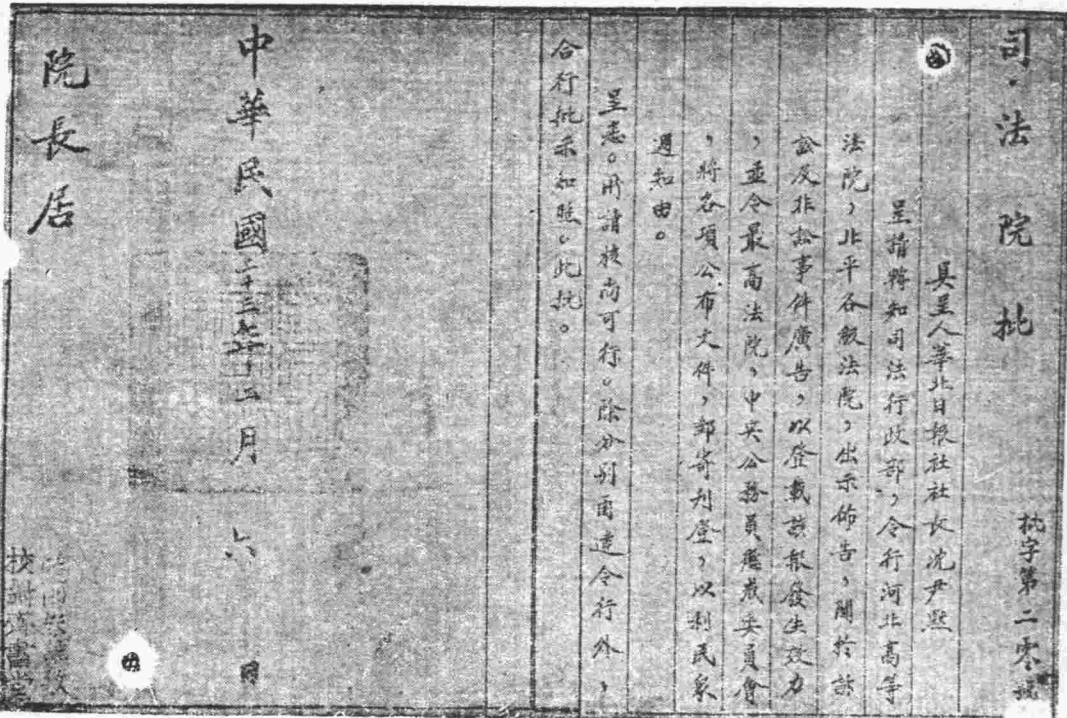 司法院批
批字第二零號
具呈人華北日報社社長沈尹默
呈請轉知司法行政部，令行河北高等
法院，北平各級法院，出示佈告，關於訴
訟及非訟事件廣告，以登載該報發生效力
，並令最高法院，中央公務員懲戒委員會
，將各項公布文件，郵寄刊登，以利民衆
週知由。
呈悉。所請核尚可行。除分別函達令行外，
合行批示知照。此批。
中華民國二十三年十二月六日
院長居
校對